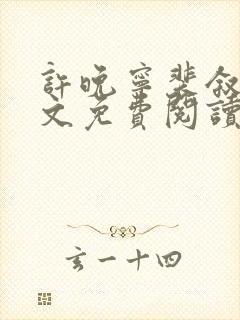 許晚寧裴敘
文免費閱讀
玄一十四